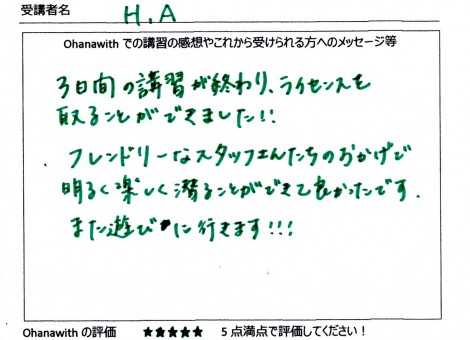 受講者名 H.A
Ohanawith での講習の感想やこれから受けられる方へのメッセージ等
3日間の講習が終わり、ライセンスを
取ることができました!!
フレンドリーなスタッフさんたちのおかげで
明るく楽しく潜ることができて良かったです.
また遊びに行きます!!!
Ohanawith の評価 ★★★★★ 5点満点で評価してください!